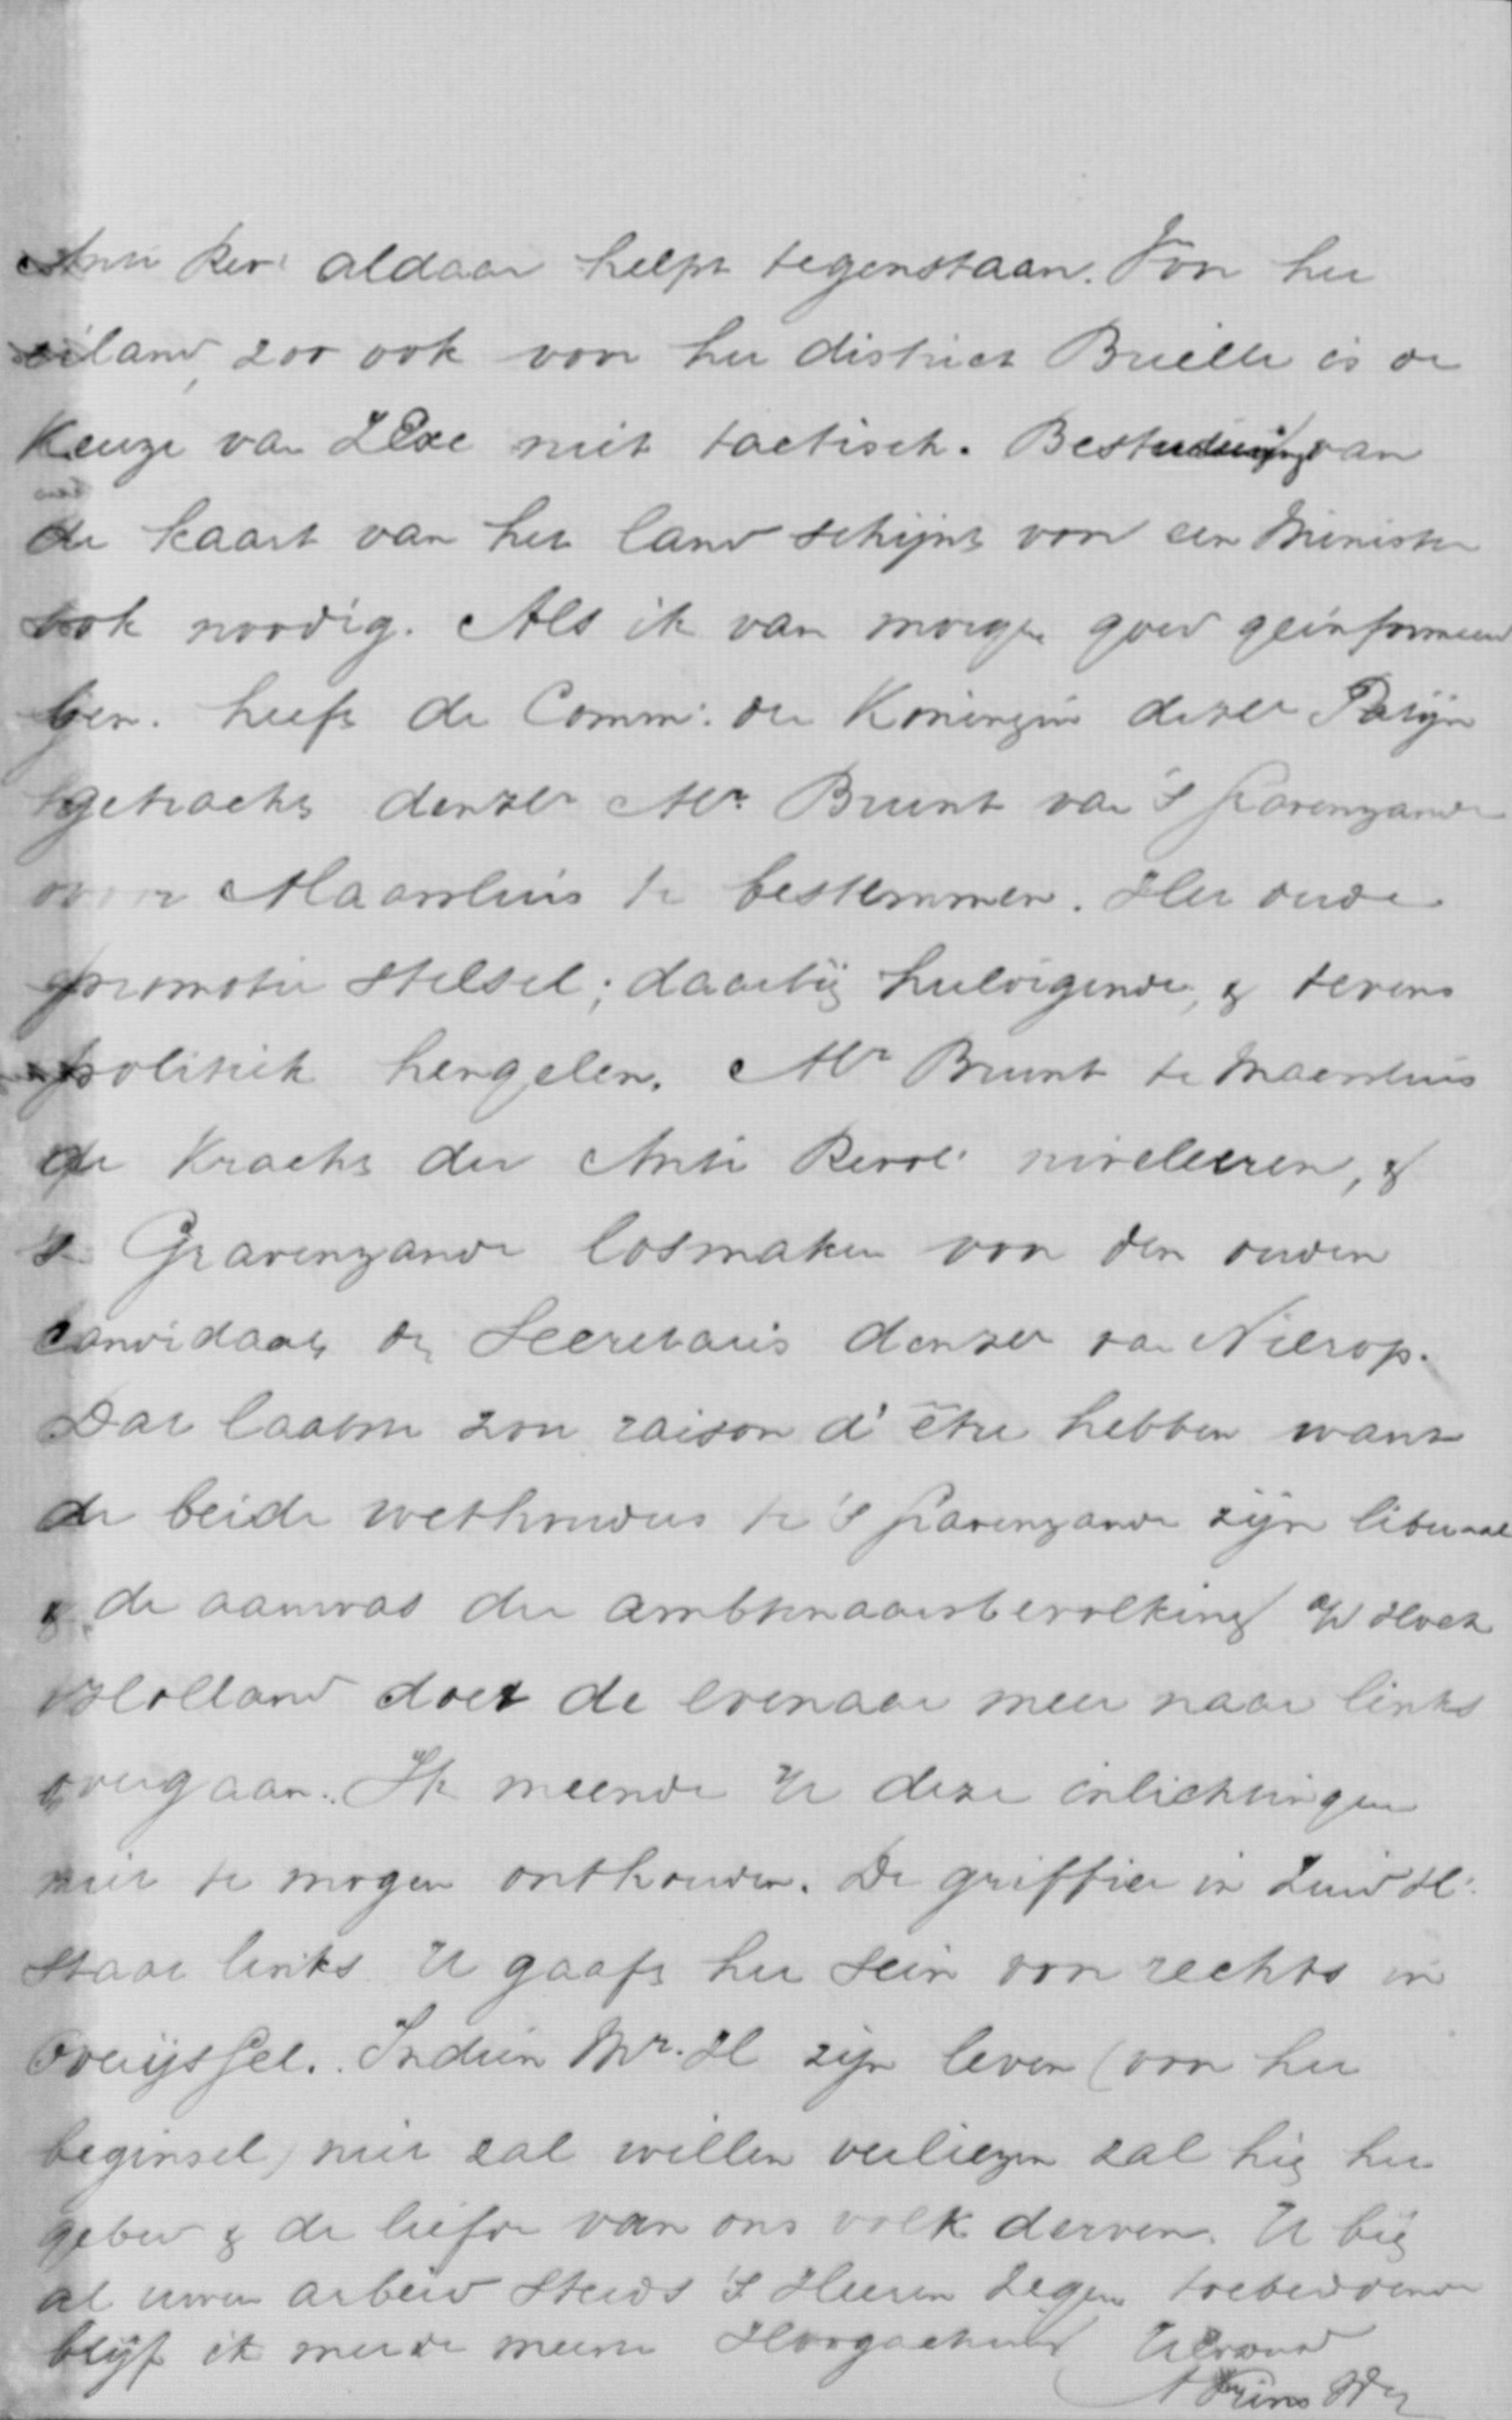 Anti Rev: aldaar helpt tegenstaan. Voor het
eiland, zoo ook voor het district Brielle is de
Keuze van ZExe niet tactisch. Bestudeering van
de kaart van het land schijnt voor een Minister
ook noodig. Als ik van morgen goed geinformeerd
ben. heeft de Comm: der Koningin dezer
getracht denzer Mr. Brunt van 's Gravenzande
voor Maassluis te bestemmen. Het oude
promotie stelsel; daarbij huldigende, & tevens
politiek hengelen. Mr Brunt te Maassluis
de Kracht der Anti Revol: niveleeren, &
's Gravenzande losmaken voor den ouden
Candidaat, de Secretaris denzer van Nierop.
Dat laatste zou raison d'être hebben want
de beide wethouders te 's Gravenzande zijn liberaal
& de aanwas der ambtenaarsbevolking a/d Hoek
v Holland doet de evenaar meer naar links
overgaan. Ik meende U deze inlichtingen
niet te mogen onthouden. De griffier in Zuid Hl:
staat links U gaaft het sein voor rechts in
Overijssel. Indien Mr. H zijn leven (voor het
beginsel) niet zal willen verliezen zal hij het
gebed & de liefde van ons volk derven. U bij
al uwen arbeid steeds 's Heeren Zegen toebiddende
blijf ik met de meeste Hoogachting UEdwDr